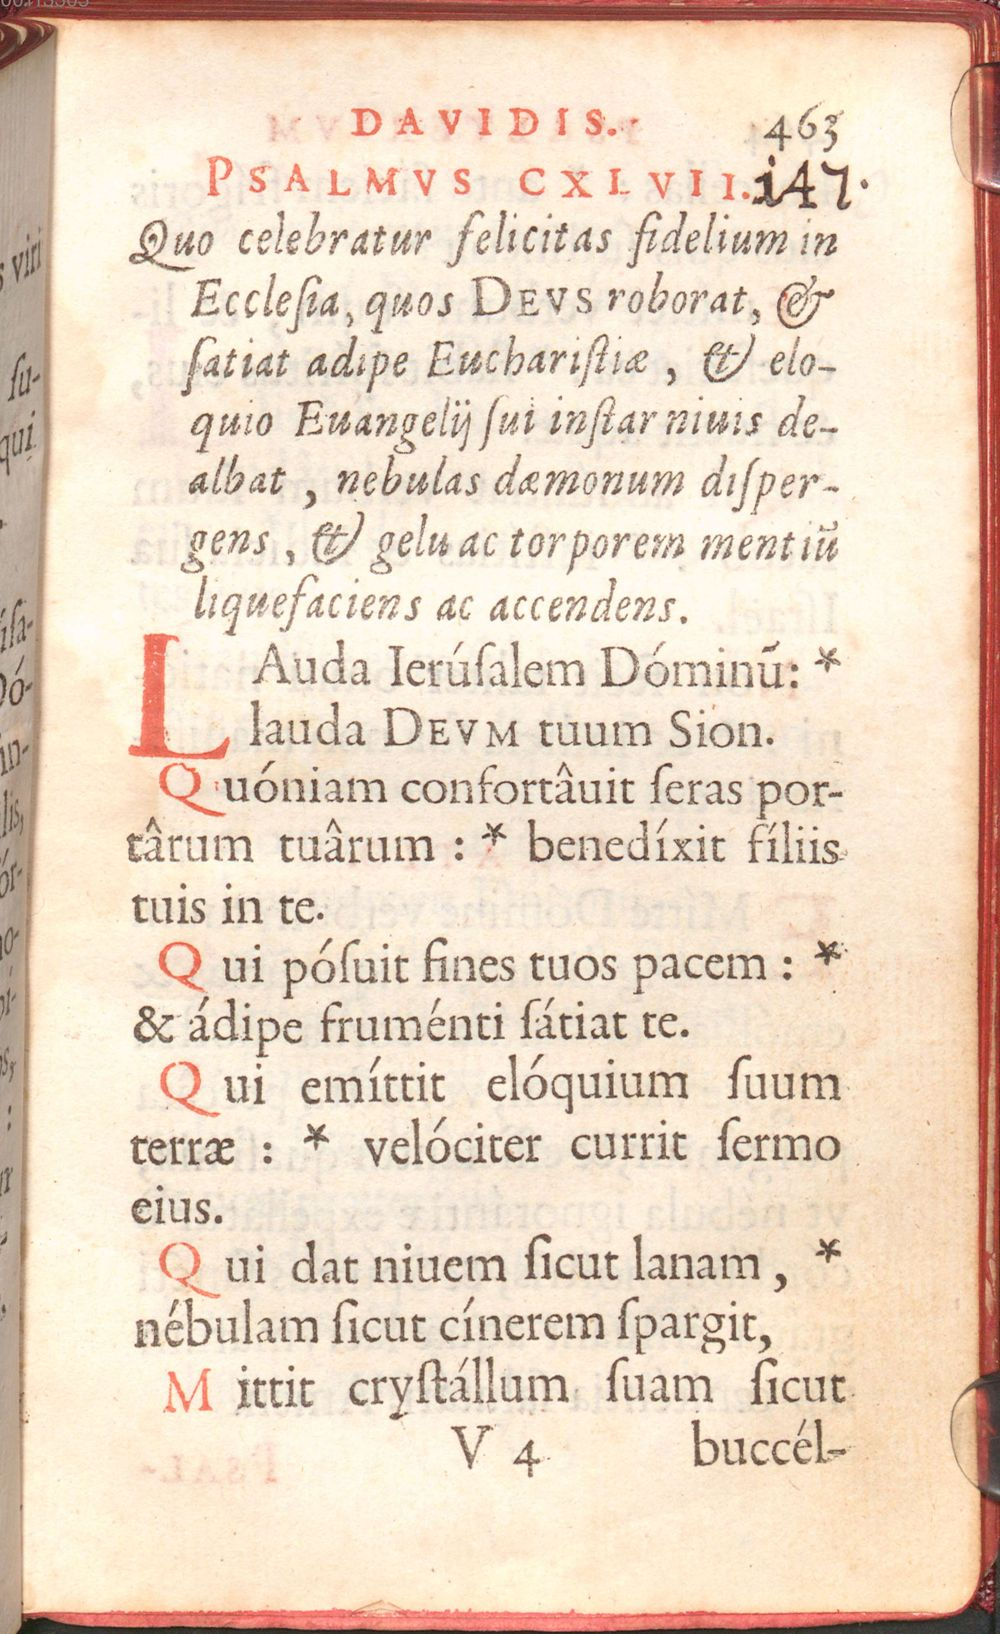 DAVIDIS. 463
PSALMVS CXLVII. 147.
Quo celebratur felicitas fidelium in
Eccleſia, quos DEVS roborat, &
ſatiat adipe Euchariſtiæ, & elo-
quio Euangelij ſui inſtar niuis de-
albat, nebulas dæmonum diſper-
gens, & gelu ac torporem mentiū
liquefaciens ac accendens.
LAuda Ierúſalem Dóminū: *
lauda DEVM tuum Sion.
Quóniam confortâuit ſeras por-
târum tuârum : * benedíxit fíliis
tuis in te.
Qui póſuit fines tuos pacem : *
& ádipe fruménti ſátiat te.
Qui emíttit elóquium ſuum
terræ : * velóciter currit ſermo
eius.
Qui dat niuem ſicut lanam, *
nébulam ſicut cínerem ſpargit,
Mittit cryſtállum ſuam ſicut
V 4 buccél-